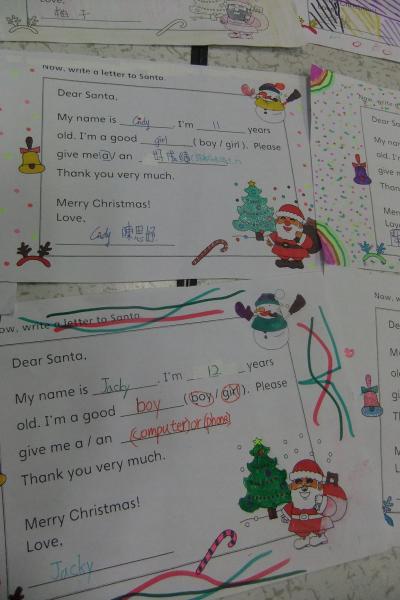 Love,
Now, write a letter to Santa.
Dear Santa,
My name is Cindy. I'm 11 years
old. I'm a good girl (boy / girl). Please
give me a / an 好成績
Thank you very much.
Merry Christmas!
Love,
Cindy 陳思妤
Now, write a letter to Santa.
Dear Santa,
My name is Jacky. I'm 12 years
old. I'm a good boy (boy / girl). Please
give me a / an (computer) or (phone)
Thank you very much.
Merry Christmas!
Love,
Jacky
Dear S
My na
old. I'
give m
Than
Merr
Love
Now, w
Dear
My
old.
give
Tha
Me
Lo